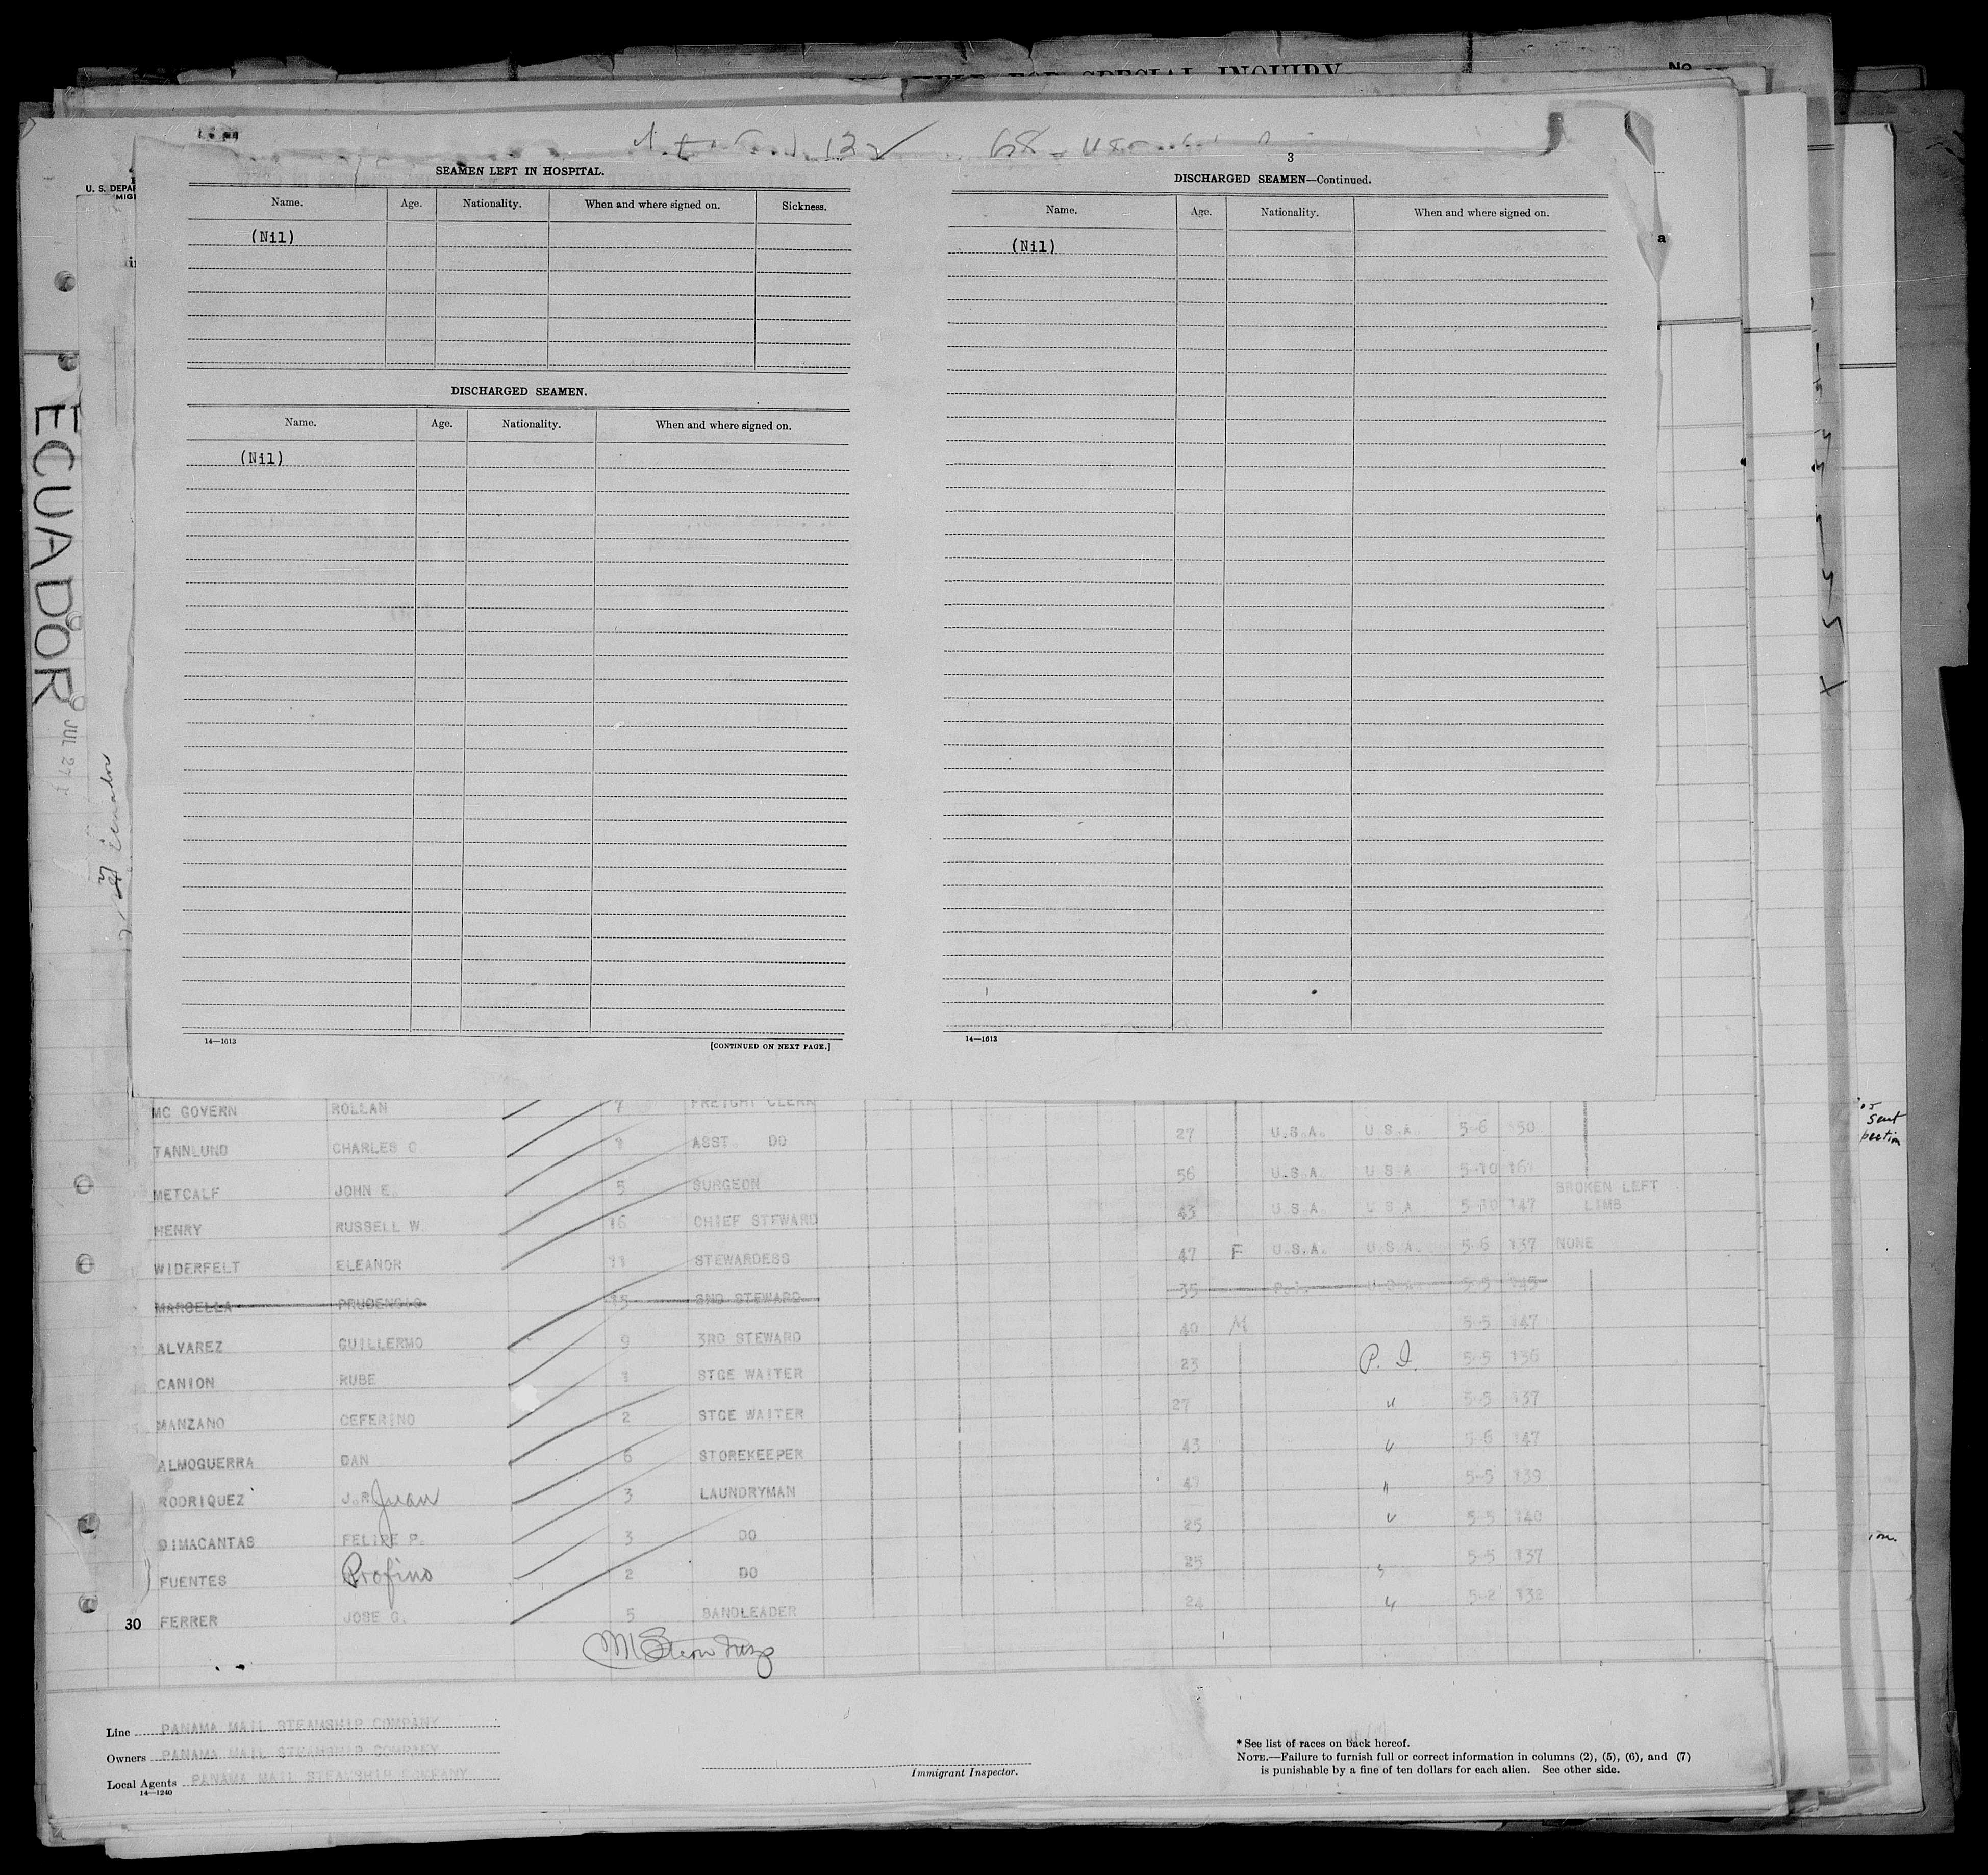 FOR SPECIAL INQUIRY
No
13 ✓
3
U. S. DEPAR
ECUADOR
JUL 27
SEAMEN LEFT IN HOSPITAL.
Name. Age. Nationality. When and where signed on. Sickness.
(Nil)
DISCHARGED SEAMEN.
Name. Age. Nationality. When and where signed on.
(Nil)
14—1613 [CONTINUED ON NEXT PAGE.]
DISCHARGED SEAMEN—Continued.
Name. Age. Nationality. When and where signed on.
(Nil)
14—1613
a
sent
MC GOVERN ROLLAN 7 FREIGHT CLERK
TANNLUND CHARLES G ASST. DO 27 U.S.A. U.S.A. 5-6 150
METCALF JOHN E. 5 SURGEON 56 U.S.A. U S A 5-10
HENRY RUSSELL W. 16 CHIEF STEWARD 43 U.S.A. U S A 5-10 147 BROKEN LEFT LIMB
WIDERFELT ELEANOR 11 STEWARDESS 47 F U.S.A. U.S.A. 5-6 137 NONE
MARCELLA PRUDENCIO 15 2ND STEWARD 35 P.I. U S A 5-5 145
ALVAREZ GUILLERMO 9 3RD STEWARD 40 M 5-5 147
CANION RUBE 1 STGE WAITER 23 P. I. 5-5 136
MANZANO CEFERINO 2 STGE WAITER 27 " 5-5 137
ALMOGUERRA DAN 6 STOREKEEPER 43 " 5-6 147
RODRIQUEZ J.R. Juan 3 LAUNDRYMAN " 5-5 139
DIMACANTAS FELIPE P. 3 DO 25 " 5-5 140
FUENTES Profino 2 DO 25 " 5-5 137
30 FERRER JOSE G. 5 BANDLEADER 24 " 5-2 132
Line PANAMA MAIL STEAMSHIP COMPANY
Owners PANAMA MAIL STEAMSHIP COMPANY
Local Agents PANAMA MAIL STEAMSHIP COMPANY
14—1240
Immigrant Inspector.
* See list of races on back hereof.
NOTE.—Failure to furnish full or correct information in columns (2), (5), (6), and (7)
is punishable by a fine of ten dollars for each alien. See other side.